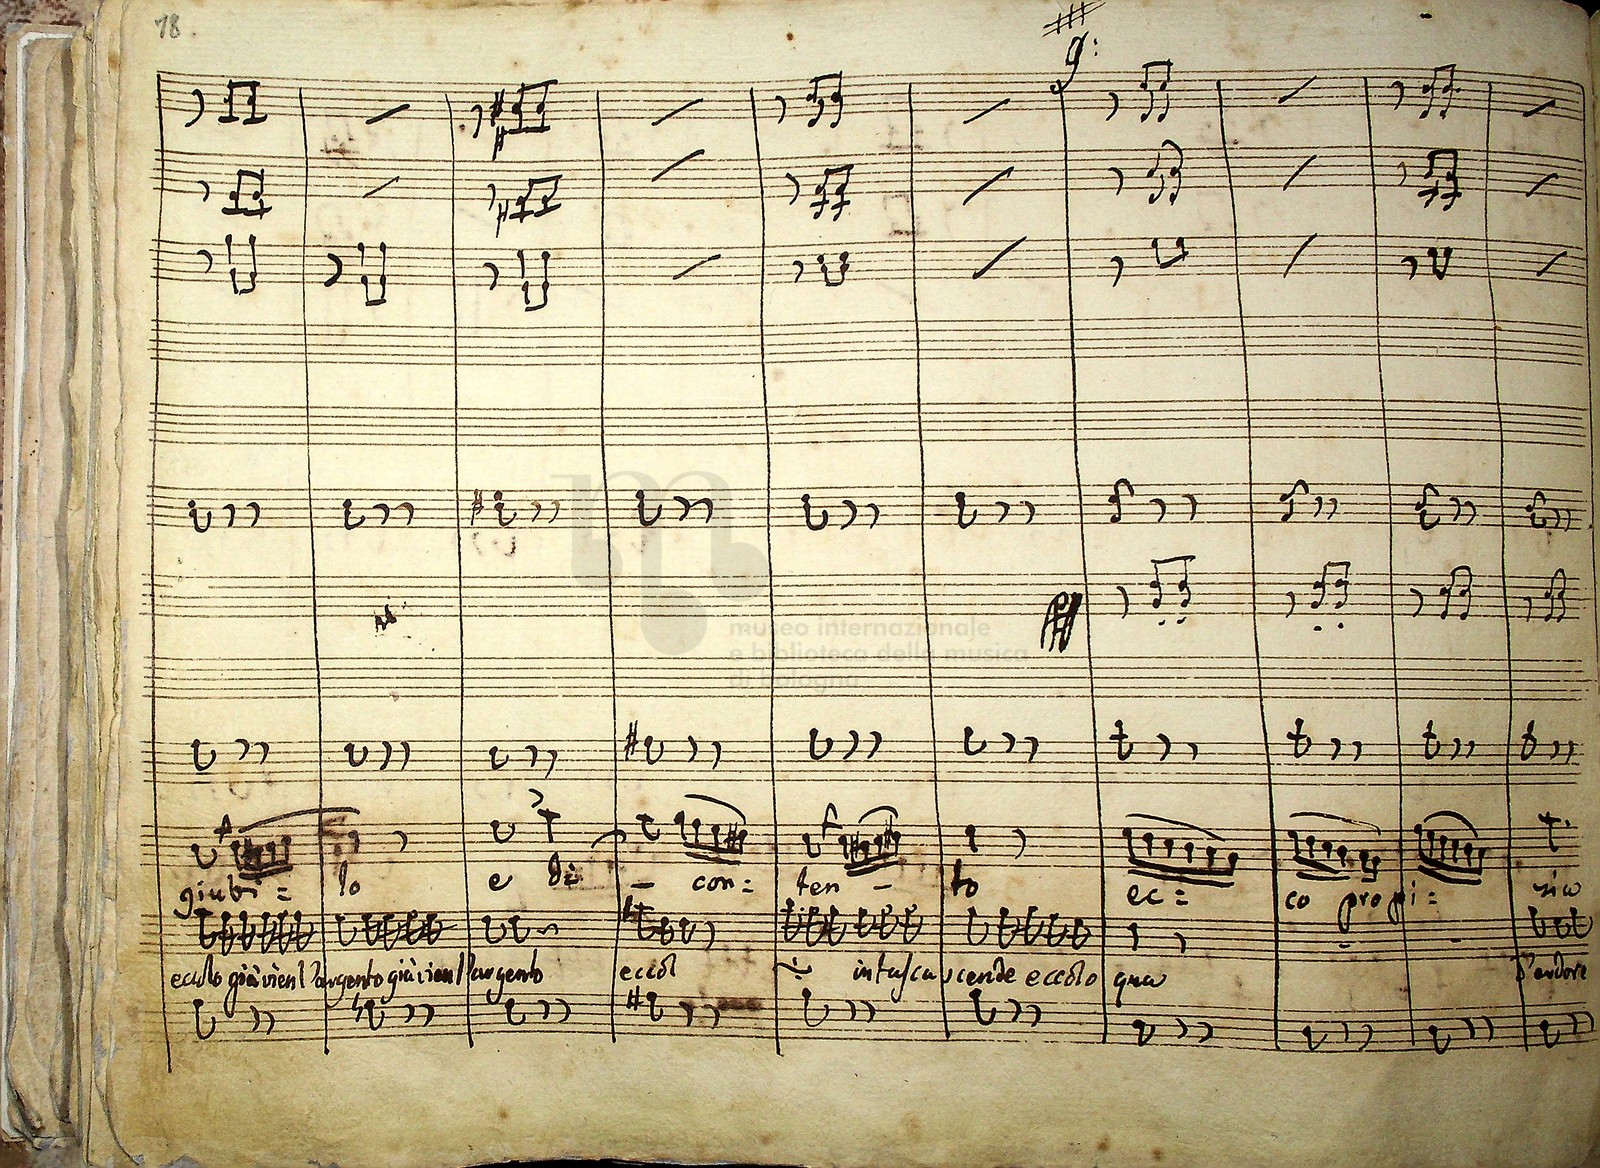 78
museo internazionale
e biblioteca della musica
di bologna
giubi = lo e di - con = ten - to ec = co propi =
eccolo già vien l'argento già vien l'argento eccol intasca scende eccolo qua